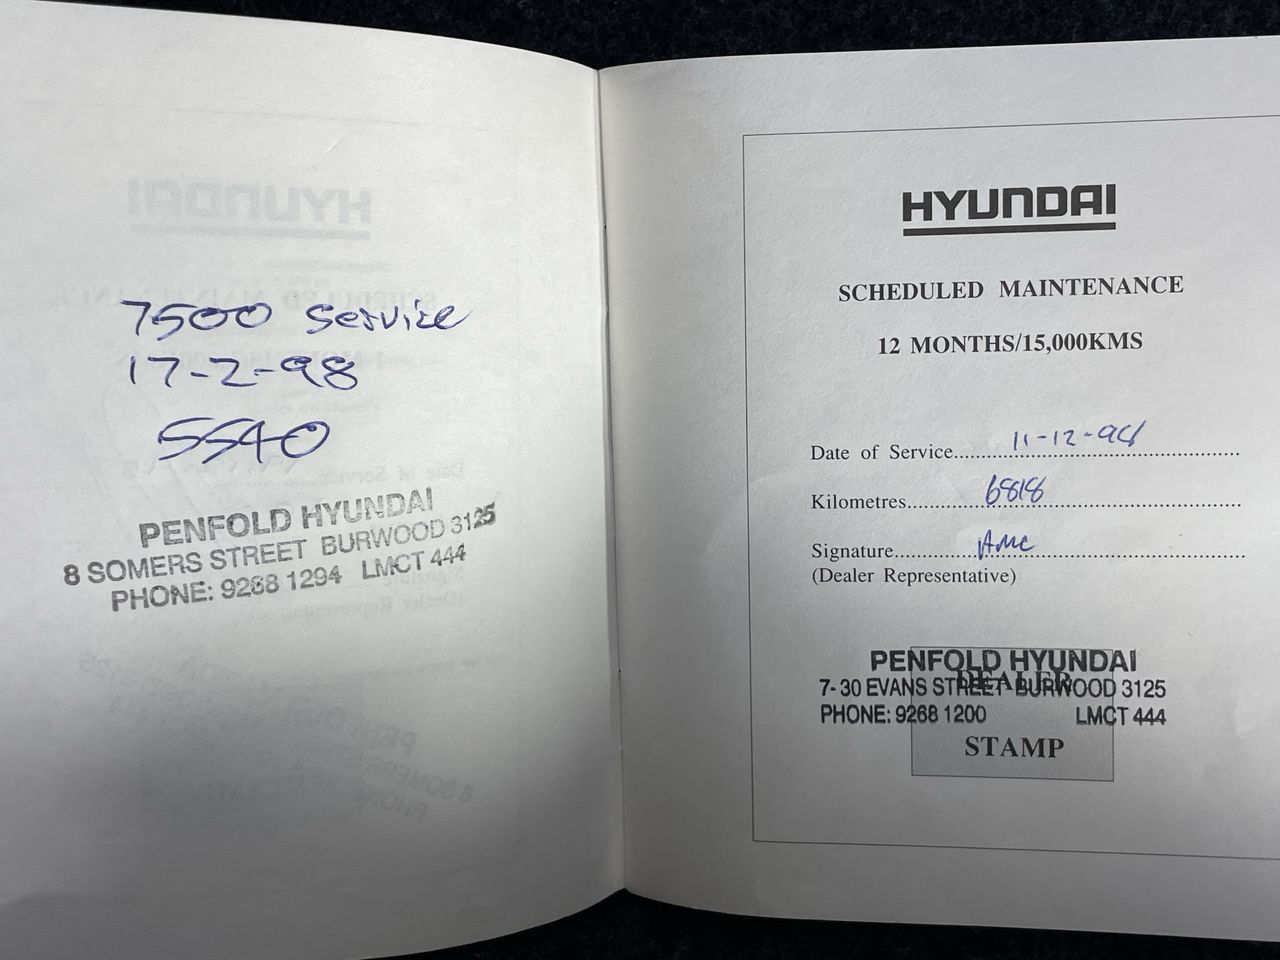 7500 Service
17-2-98
5540
PENFOLD HYUNDAI
8 SOMERS STREET BURWOOD 3125
PHONE: 9268 1294 LMCT 444
HYUNDAI
SCHEDULED MAINTENANCE
12 MONTHS/15,000KMS
Date of Service 11-12-98
Kilometres 6818
Signature AMC
(Dealer Representative)
PENFOLD HYUNDAI
DEALER
7-30 EVANS STREET BURWOOD 3125
PHONE: 9268 1200 LMCT 444
STAMP